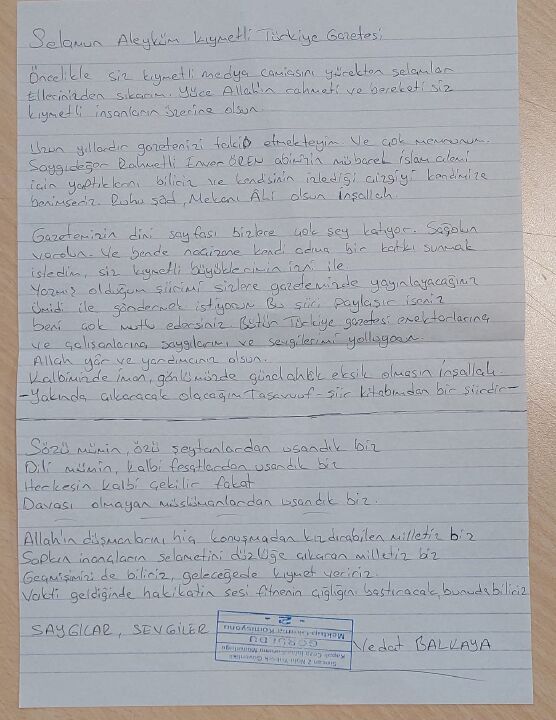 Selamun Aleyküm Kıymetli Türkiye Gazetesi
Öncelikle siz kıymetli medya camiasını yürekten selamlar
Ellerinizden sıkarım. Yüce Allah'ın rahmeti ve bereketi siz
kıymetli insanların üzerine olsun.
Uzun yıllardır gazetenizi takip etmekteyim ve çok memnunum.
Saygıdeğer Rahmetli Enver ÖREN abimizin mübarek islam alemi
için yaptıklarını biliriz ve kendisinin izlediği çizgiyi kendimize
benimseriz. Ruhu şad, Mekanı Âli olsun inşallah.
Gazetemizin dini sayfası bizlere çok şey katıyor. Sağolun
varolun. Ve bende naçizane kendi adıma bir katkı sunmak
istedim, siz kıymetli büyüklerimin izni ile.
Yazmış olduğum şiirimi sizlere gazetemizde yayınlayacağınız
ümidi ile göndermek istiyorum Bu şiiri paylaşır iseniz
beni çok mutlu edersiniz. Bütün Türkiye gazetesi emektarlarına
ve çalışanlarına saygılarımı ve sevgilerimi yolluyorum.
Allah yâr ve yardımcınız olsun.
Kalbimizde iman, gönlümüzde güzel ahlâk eksik olmasın inşallah.
-Yakında çıkaracak olacağım Tasavvuf-şiir kitabımdan bir şiirdir-
Sözü mümin, özü şeytanlardan usandık biz
Dili mümin, kalbi fesatlardan usandık biz
Herkesin kalbi çekilir fakat
Davası olmayan müslümanlardan usandık biz.
Allah'ın düşmanlarını hiç konuşmadan kızdırabilen milletiz biz
Sapkın inançların selametini düzlüğe çıkaran milletiz biz
Geçmişimizi de biliriz, geleceğede kıymet veririz.
Vakti geldiğinde hakikatin sesi fitnenin çığlığını bastıracak, bunuda biliriz
SAYGILAR, SEVGİLER
Vedat BALKAYA
Sincan 2 Nolu Yüksek Güvenlikli
Kapalı Ceza İnfaz Kurumu Müdürlüğü
GÖRÜLDÜ
Mektup Okuma Komisyonu
- 2 -